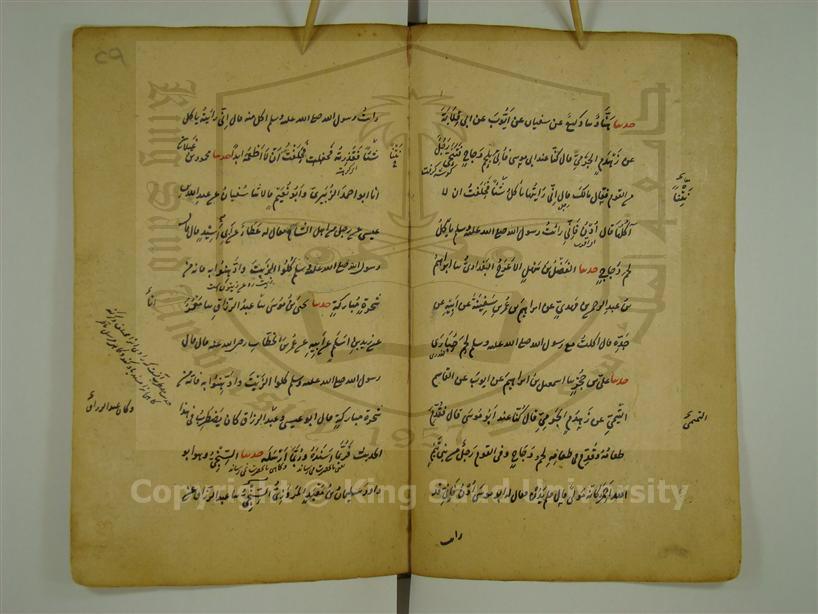 حدثنا هناد ثنا وكيع عن سفيان عن ايوب عن ابي قلابة
عن زهدم الجرمي قال كنا عند ابي موسى فأتي بلحم دجاج فتنحى رجل
من القوم فقال مالك قال اني رايتها تأكل شيئا فحلفت ان لا
آكلها قال ادن فاني رأيت رسول الله صلى الله عليه وسلم يأكل
لحم دجاج حدثنا الفضل بن سهل الاعرج البغدادي ثنا ابراهيم
بن عبد الرحمن بن مهدي عن ابراهيم بن عمر بن سفينة عن ابيه عن
جده قال اكلت مع رسول الله صلى الله عليه وسلم لحم حبارى
حدثنا علي بن حجر ثنا اسمعيل بن ابراهيم عن ايوب عن القاسم
التيمي عن زهدم الجرمي قال كنا عند أبو موسى قال فقدم
طعامه وقدم في طعامه لحم دجاج وفي القوم رجل من بني تيم
الله احمر كانه مولى قال فلم يدن فقال له ابو موسى ادن فاني قد
رايت
التميمي
رأيت رسول الله صلى الله عليه وسلم اكل منه قال اني رأيته يأكل
شيئا فقذرته فحلفت أن لا أطعمه ابدا حدثنا محمود بن غيلان
انا ابو احمد الزبيري وأبو نعيم قالا ثنا سفيان عن عبد الله بن
عيسى عن رجل من اهل الشام يقال له عطاء عن أبي أسيد قال قال
رسول الله صلى الله عليه وسلم كلوا الزيت وادهنوا به فانه من
شجرة مباركة حدثنا يحيى بن موسى ثنا عبد الرزاق ثنا معمر
عن زيد بن اسلم عن أبيه عن عمر بن الخطاب رضي الله عنه قال قال
رسول الله صلى الله عليه وسلم كلوا الزيت وادهنوا به فانه من
شجرة مباركة قال ابو عيسى وعبد الرزاق كان يضطرب في هذا
الحديث فربما أسنده وربما أرسله حدثنا السنجي وهو ابو
داود سليمان بن معبد المروزي السنجي ثنا عبد الرزاق عن
انا
وكان عبد الرزاق
Copyright © King Saud University
King Saud University
1957